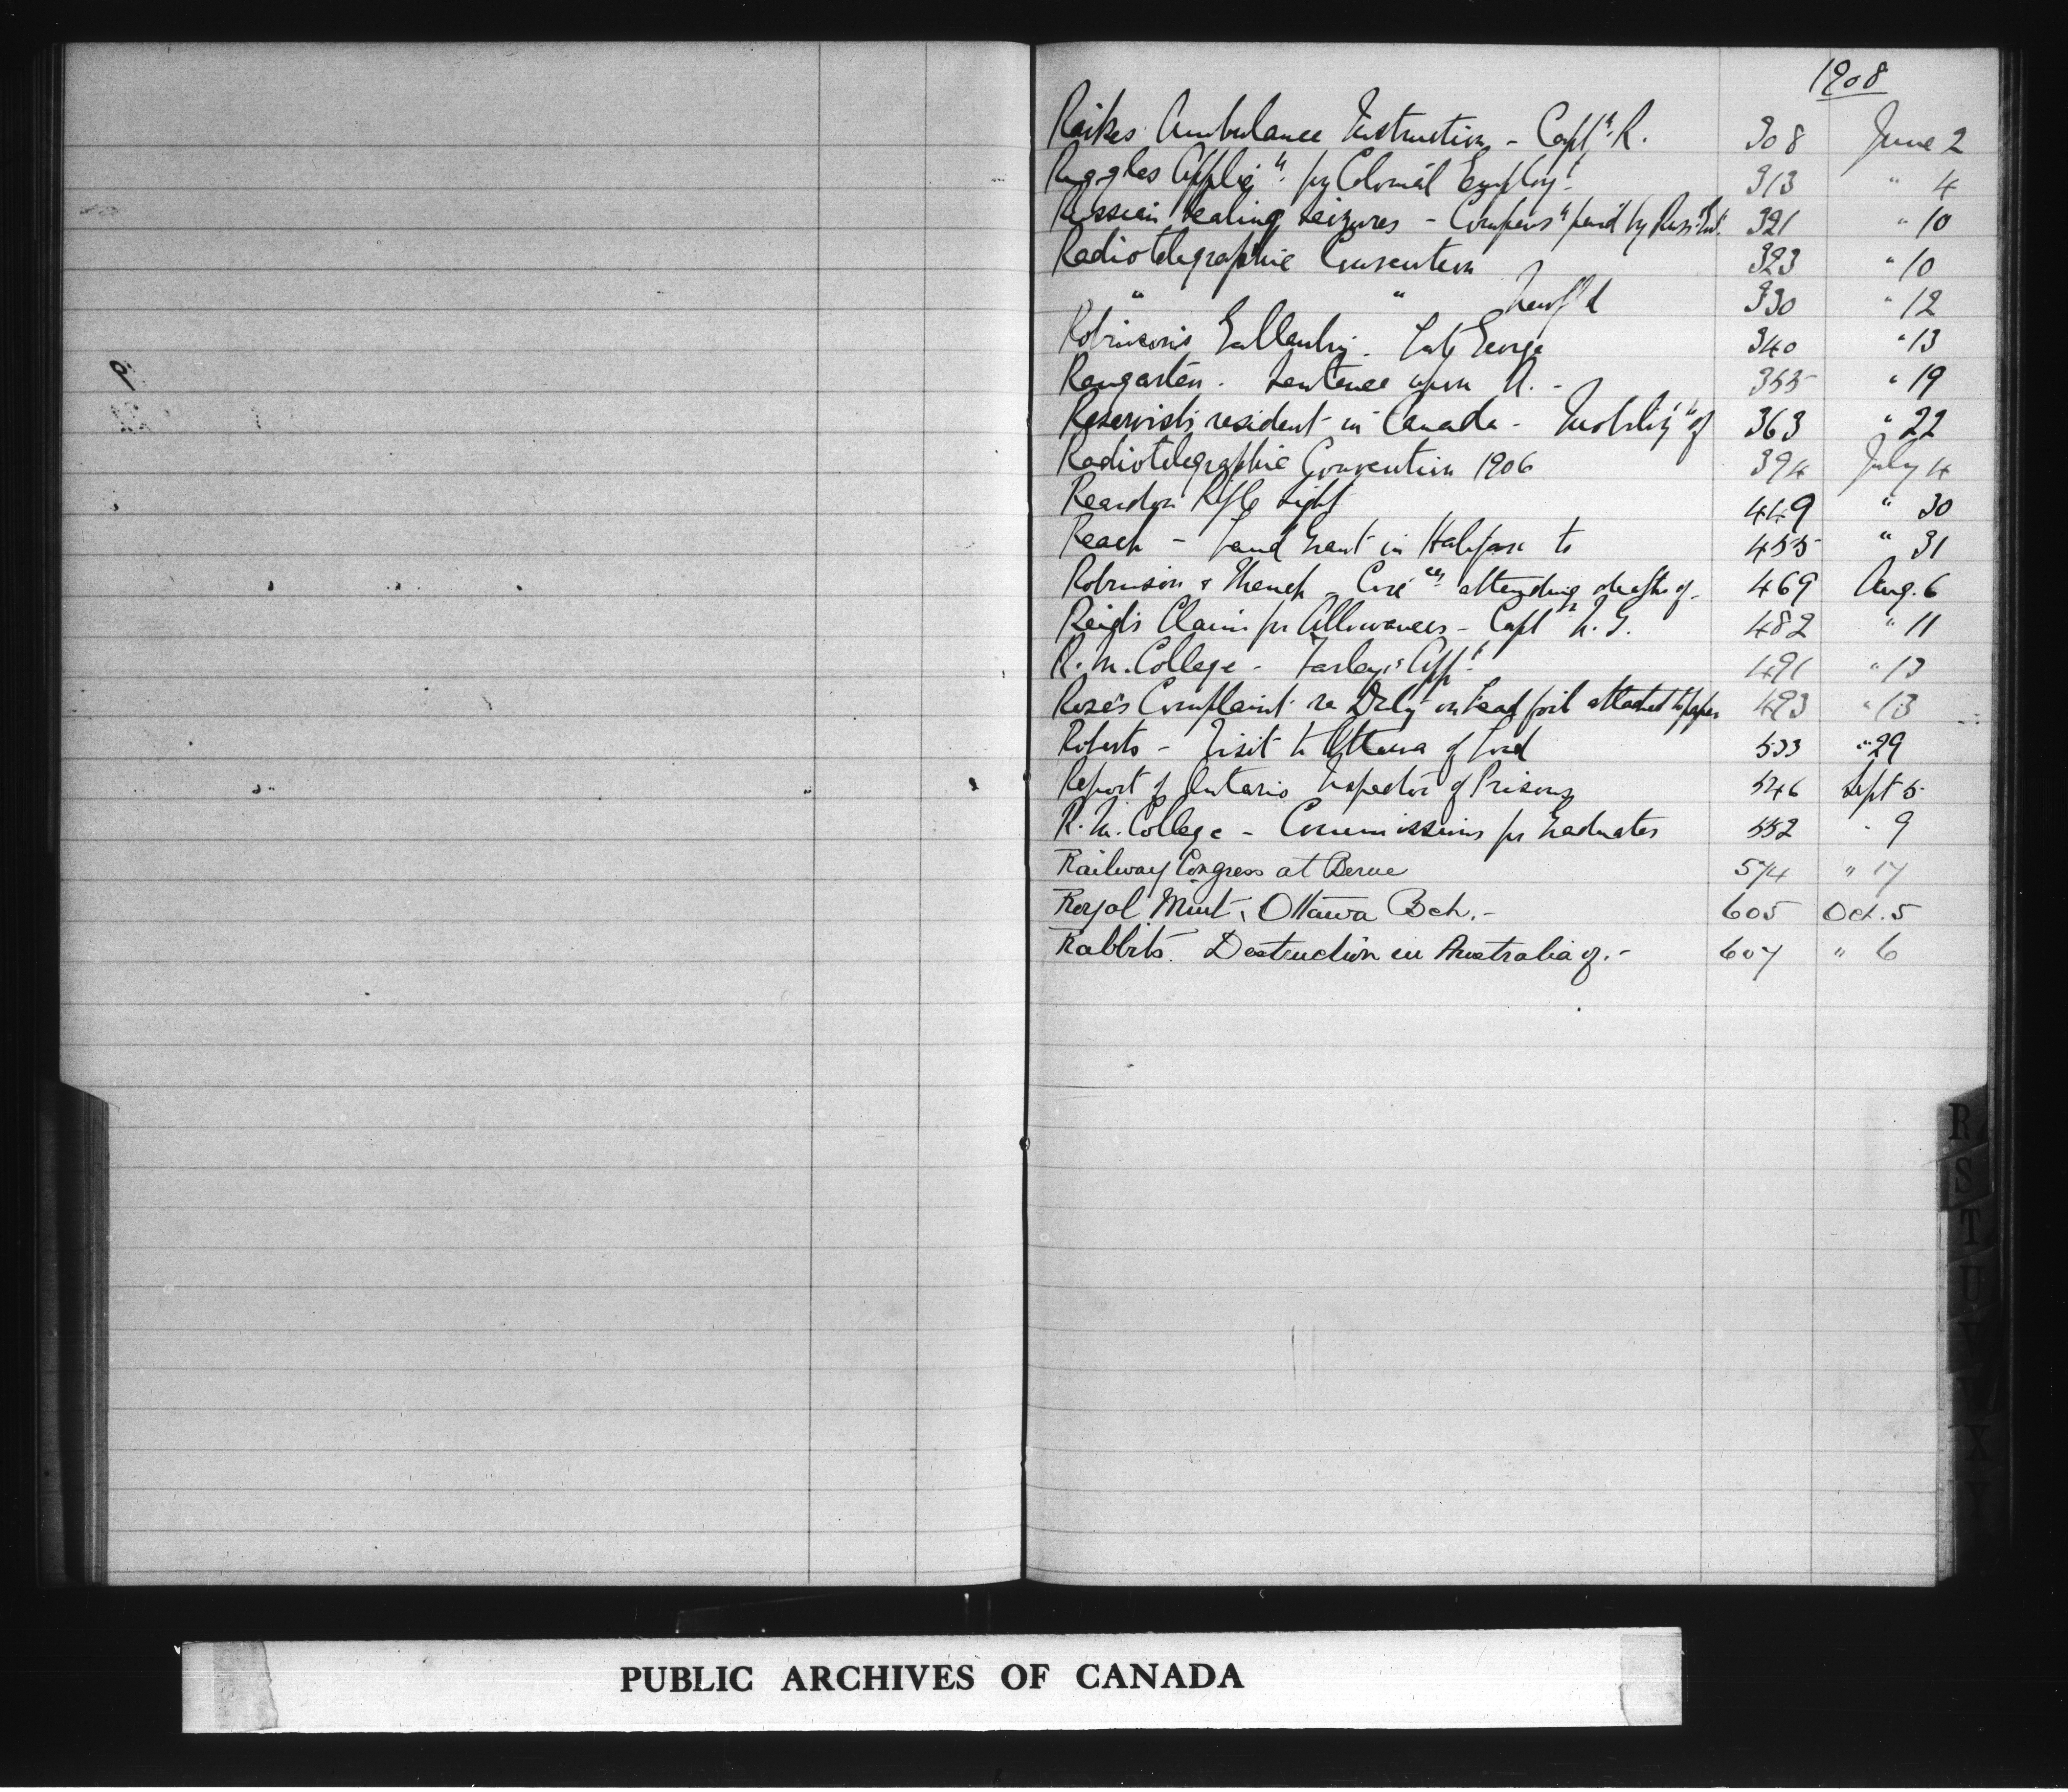 1908
Raikes Ambulance Instruction - Captn. R. 308 June 2
Ruggles Applicn. for Colonial Employt. 313 " 4
Russian Sealing Seizures - Compensn paid by Russ. 321 " 10
Radiotelegraphic Convention 323 " 10
" " Newf'd 330 " 12
Robinson's Late George 340 " 13
Rengarten. Sentence upon A. - 355 " 19
Reservists resident in Canada - Mobilizn of 363 " 22
Radiotelegraphic Convention 1906 394 July 4
Reardon Rifle Sight 449 " 30
Reach - Land Grant in Halifax to 455 " 31
Robinson & - Circes. attending deaths of - 469 Aug. 6
Reid's Claim for Allowances - Captn 482 " 11
R. M. College - Farley's Appt. 491 " 13
Rose's Complaint re Duty on Lead foil attached to paper 493 " 13
Roberts - Visit to Ottawa of Lord 533 " 29
Report of Ontario Inspector of Prisons 546 Sept 5
R. M. College - Commissions for Graduates 552 " 9
Railway Congress at Berne 574 " 17
Royal Mint, Ottawa Bch. - 605 Oct. 5
Rabbits. Destruction in Australia of. - 607 " 6
R
S
T
U
V
W
X
Y
PUBLIC ARCHIVES OF CANADA